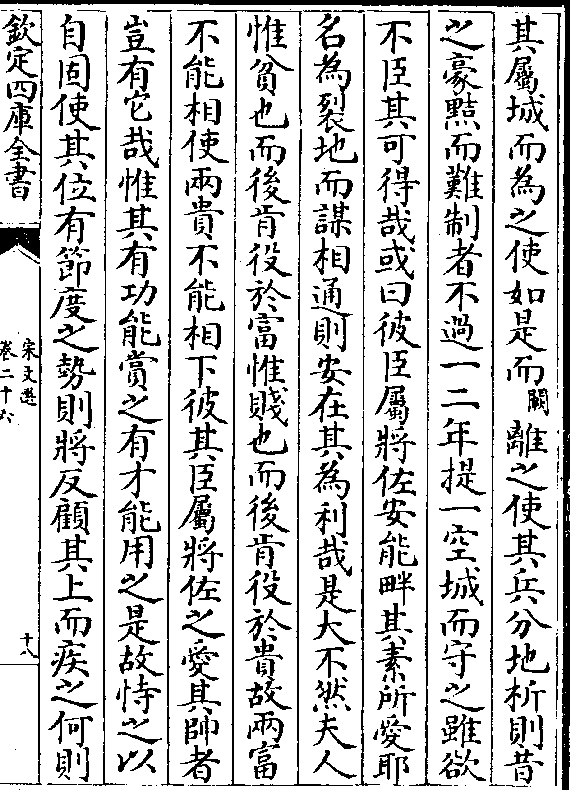 其屬城而為之使如是而闕離之使其兵分地析則昔
之豪黠而難制者不過一二年提一空城而守之雖欲
不臣其可得哉或曰彼臣屬將佐安能畔其素所愛耶
名為裂地而謀相通則安在其為利哉是大不然夫人
惟貧也而後肯役於富惟賤也而後肯役於貴故兩富
不能相使兩貴不能相下彼其臣屬將佐之愛其帥者
豈有它哉惟其有功能賞之有才能用之是故恃之以
自固使其位有節度之勢則將反顧其上而疾之何則
欽定四庫全書
宋文選
卷二十六
十八